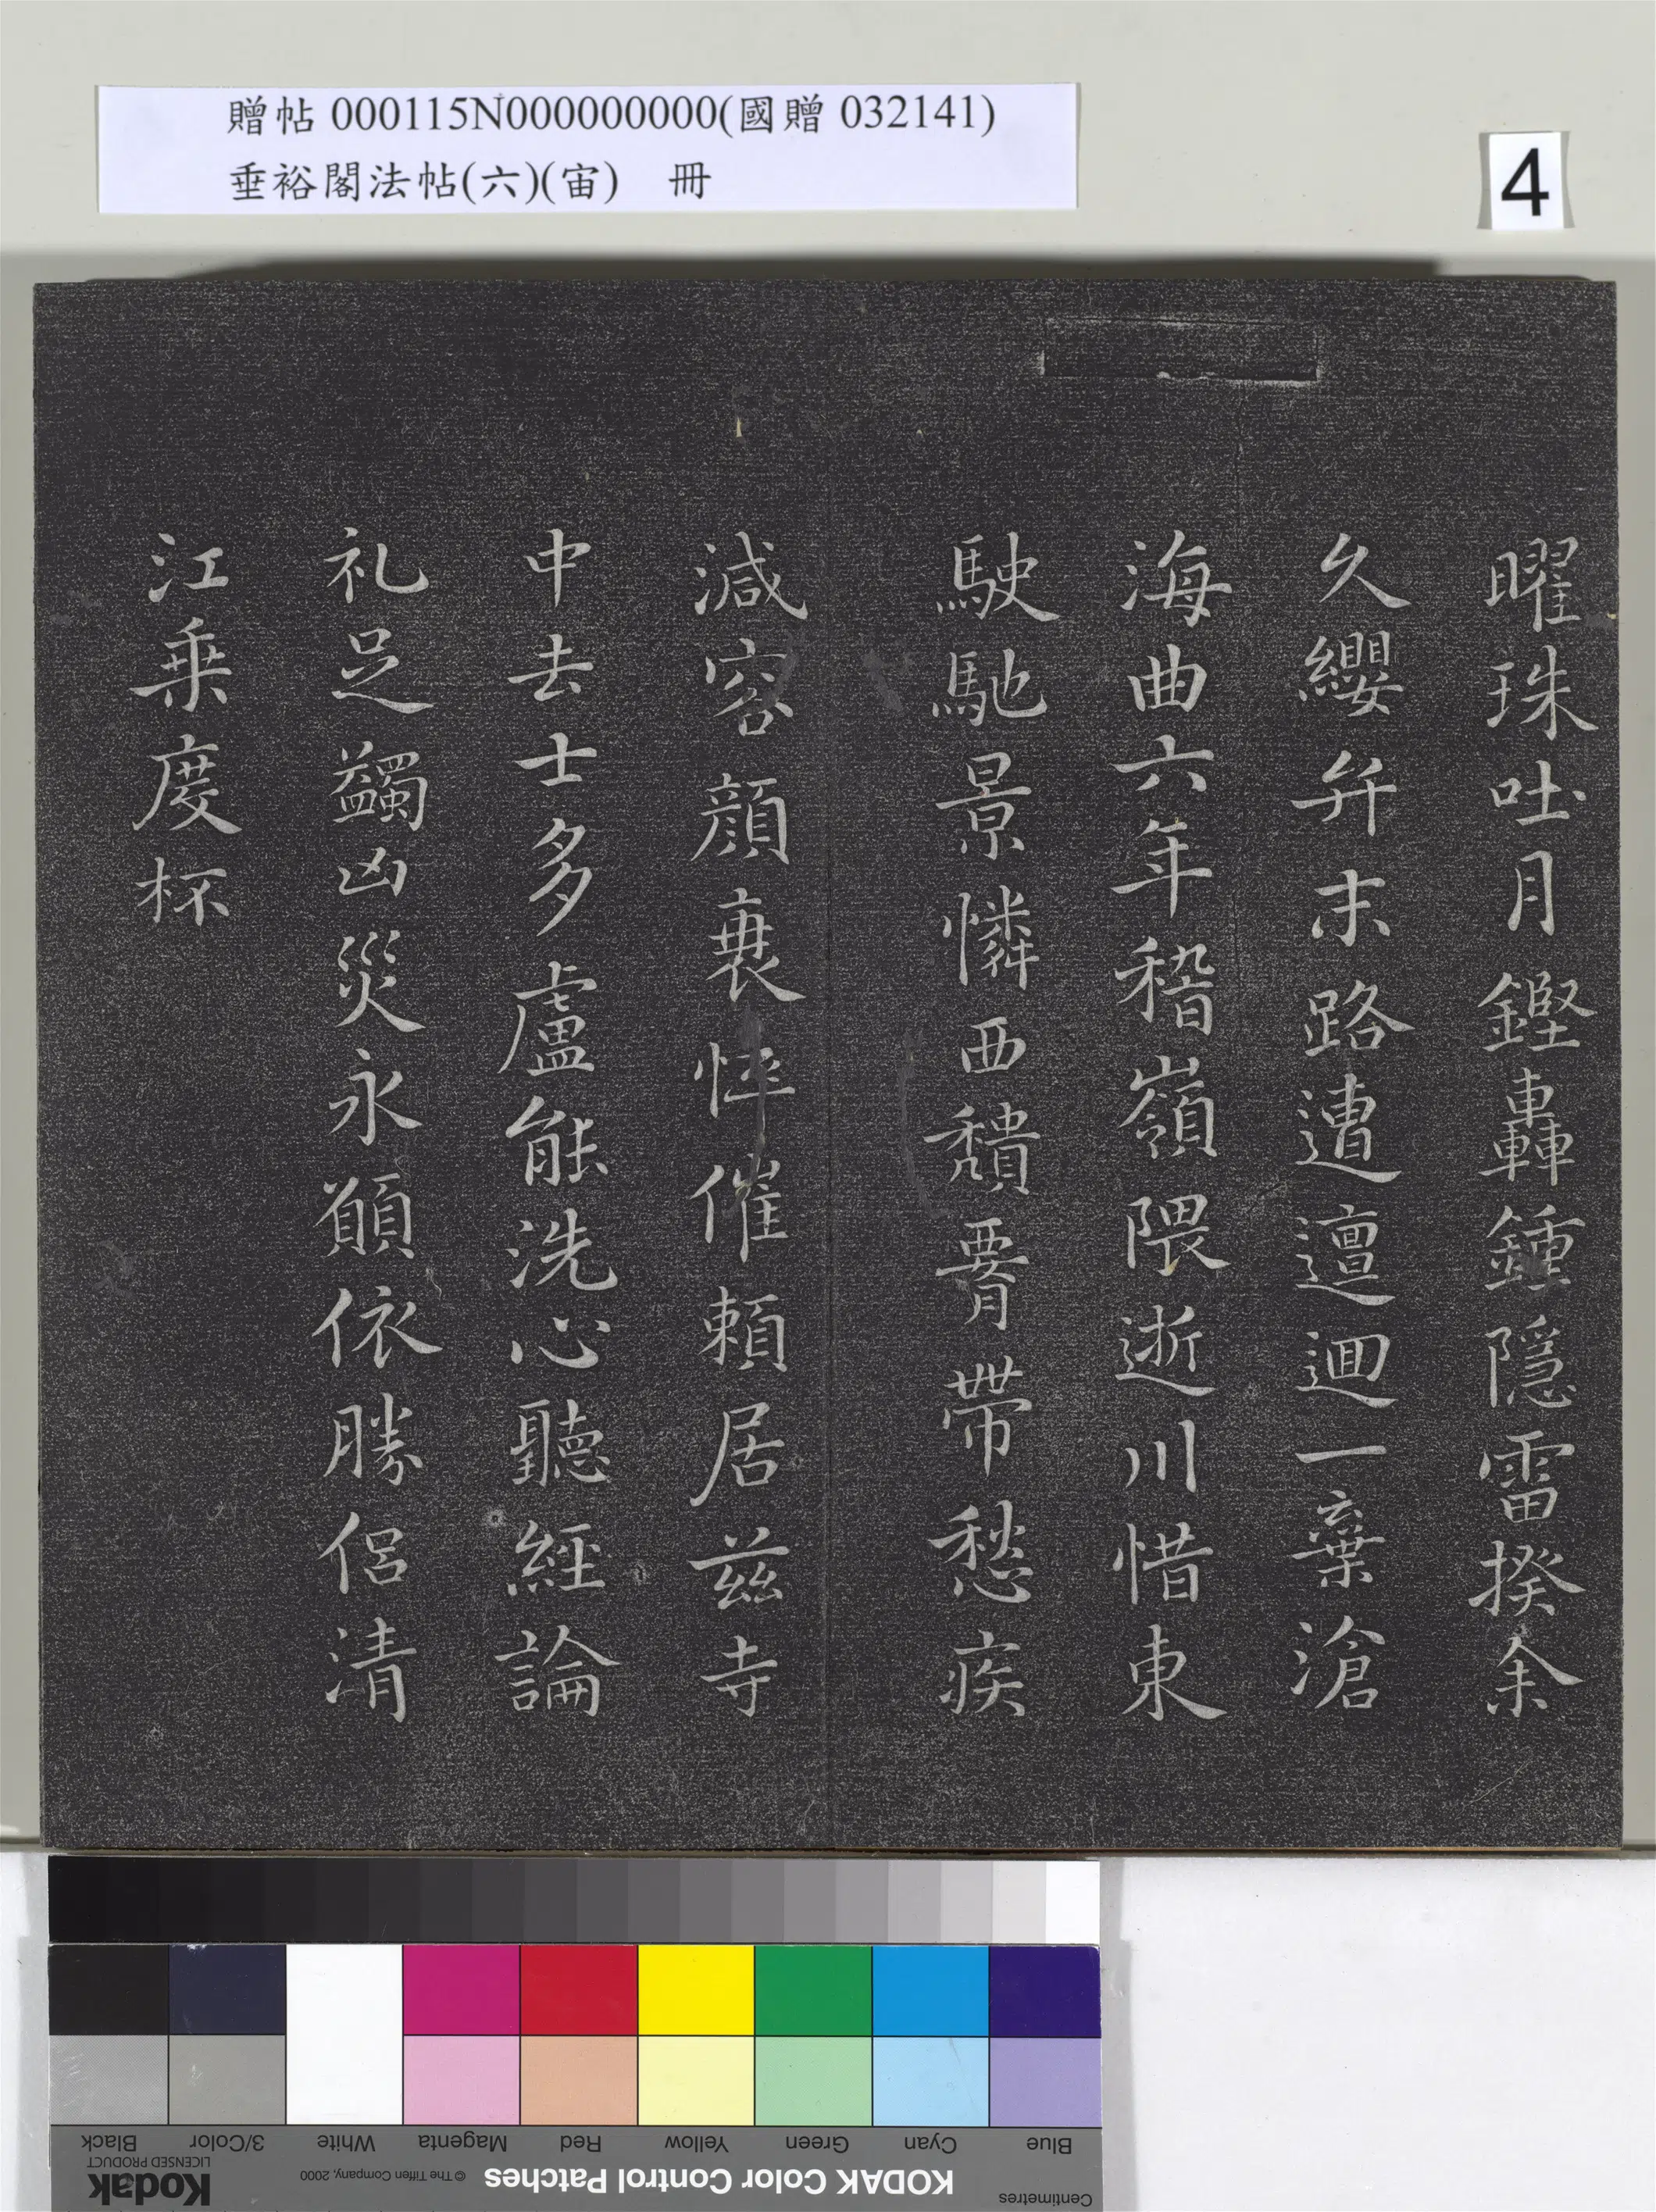 贈帖 000115N000000000(國贈 032141)
垂裕閣法帖(六)(宙) 冊
4
曜珠吐月鏗轟鍾隱雷揆余
久纓弁末路遭邅迴一棄滄
海曲六年稽嶺隈逝川惜東
駛馳景憐西穨胷帶愁疾
減容顔衰悴催頼居茲寺
中去士多盧能洗心聽經論
礼足蠲凶災永願依勝侶清
江乗度杯
Black
3/Color
White
Magenta
Red
Yellow
Green
Cyan
Blue
Kodak
LICENSED PRODUCT
© The Tiffen Company, 2000
KODAK Color Control Patches
Centimetres